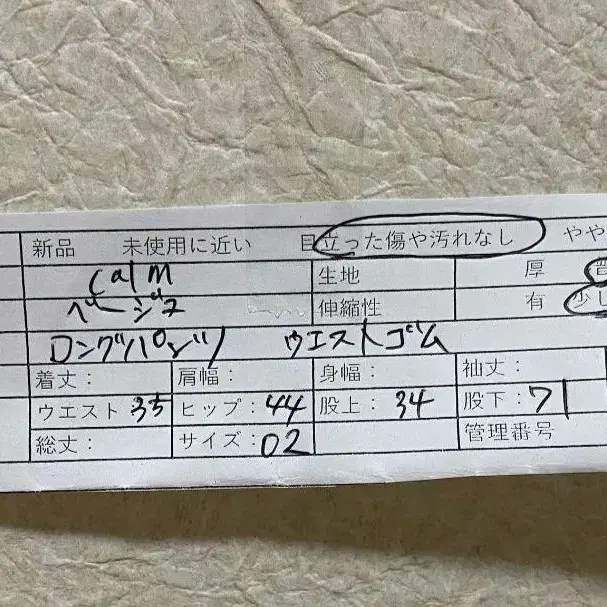 新品 未使用に近い 目立った傷や汚れなし やや
calm 生地 厚 普
ベージュ 伸縮性 有 少し
ロングパンツ ウエストゴム
着丈： 肩幅： 身幅： 袖丈：
ウエスト 35 ヒップ：44 股上：34 股下：71
総丈： サイズ：02 管理番号